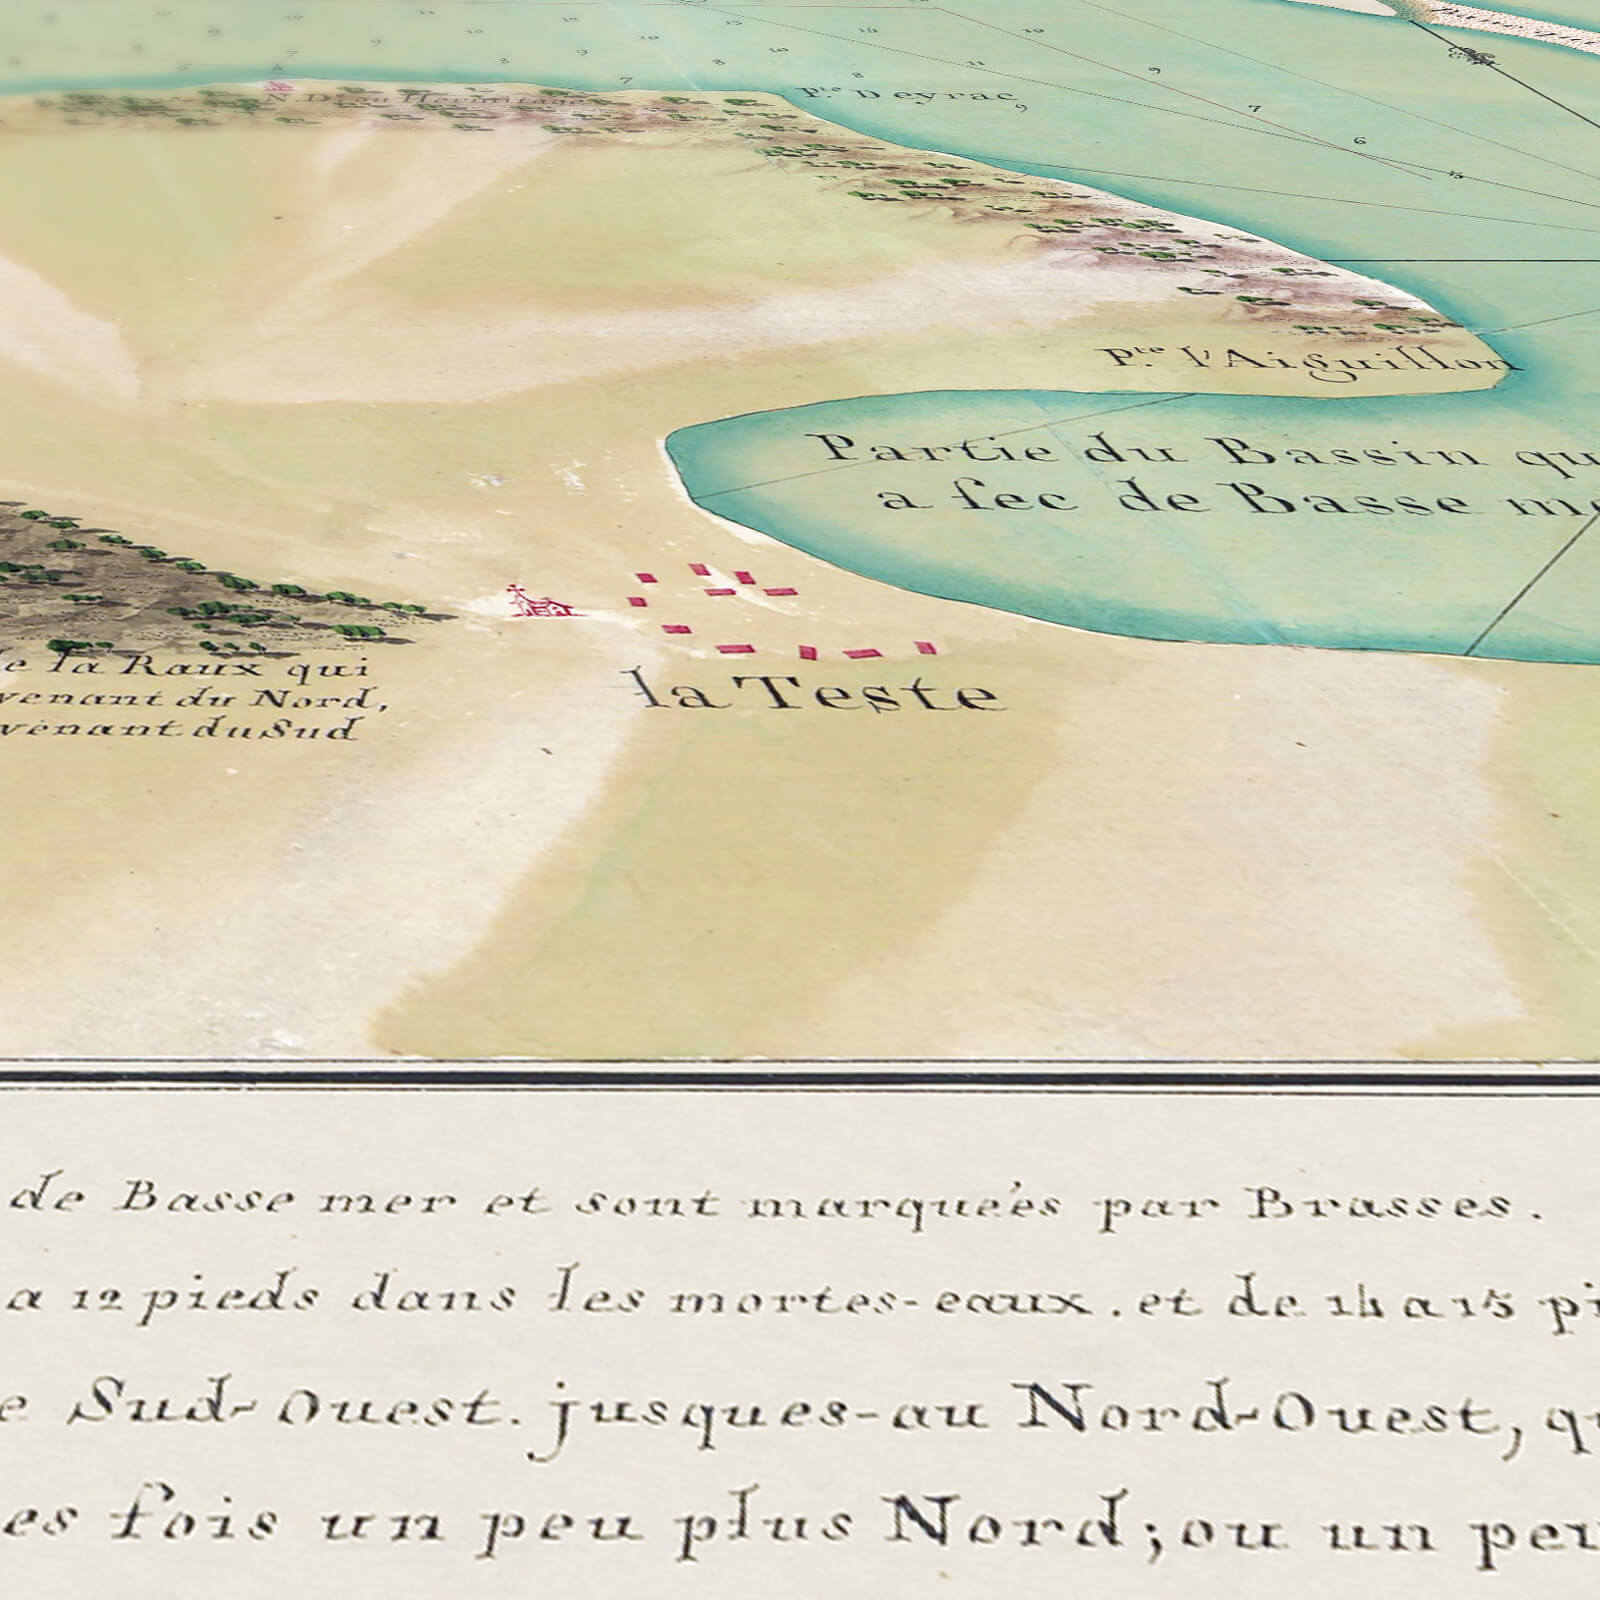 N. D. ou Hermitage
Pte Deyrac
Pte l'Aiguillon
Partie du Bassin qu
a sec de Basse me
de la Raux qui
venant du Nord,
venant du Sud
la Teste
de Basse mer et sont marqueés par Brasses.
a 12 pieds dans les mortes-eaux. et de 14 a 15 pi
e Sud-Ouest. jusques-au Nord-Ouest, qu
es fois un peu plus Nord; ou un peu